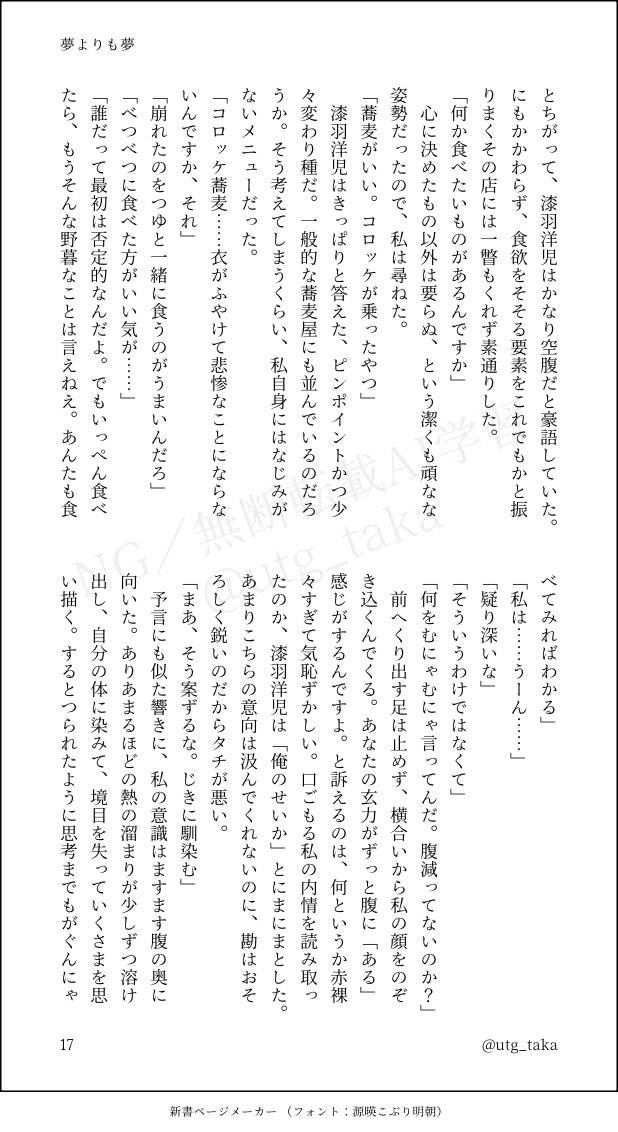 夢よりも夢
とちがって、漆羽洋児はかなり空腹だと豪語していた。
にもかかわらず、食欲をそそる要素をこれでもかと振
りまくその店には一瞥もくれず素通りした。
「何か食べたいものがあるんですか」
　心に決めたもの以外は要らぬ、という潔くも頑なな
姿勢だったので、私は尋ねた。
「蕎麦がいい。コロッケが乗ったやつ」
　漆羽洋児はきっぱりと答えた、ピンポイントかつ少
々変わり種だ。一般的な蕎麦屋にも並んでいるのだろ
うか。そう考えてしまうくらい、私自身にはなじみが
ないメニューだった。
「コロッケ蕎麦……衣がふやけて悲惨なことにならな
いんですか、それ」
「崩れたのをつゆと一緒に食うのがうまいんだろ」
「べつべつに食べた方がいい気が……」
「誰だって最初は否定的なんだよ。でもいっぺん食べ
たら、もうそんな野暮なことは言えねえ。あんたも食
べてみればわかる」
「私は……うーん……」
「疑り深いな」
「そういうわけではなくて」
「何をむにゃむにゃ言ってんだ。腹減ってないのか？」
　前へくり出す足は止めず、横合いから私の顔をのぞ
き込んでくる。あなたの玄力がずっと腹に「ある」
感じがするんですよ。と訴えるのは、何というか赤裸
々すぎて気恥ずかしい。口ごもる私の内情を読み取っ
たのか、漆羽洋児は「俺のせいか」とにまにまとした。
あまりこちらの意向は汲んでくれないのに、勘はおそ
ろしく鋭いのだからタチが悪い。
「まあ、そう案ずるな。じきに馴染む」
　予言にも似た響きに、私の意識はますます腹の奥に
向いた。ありあまるほどの熱の溜まりが少しずつ溶け
出し、自分の体に染みて、境目を失っていくさまを思
い描く。するとつられたように思考までもがぐんにゃ
NG／無断転載AI学習
@utg_taka
17
@utg_taka
新書ページメーカー（フォント：源暎こぶり明朝）